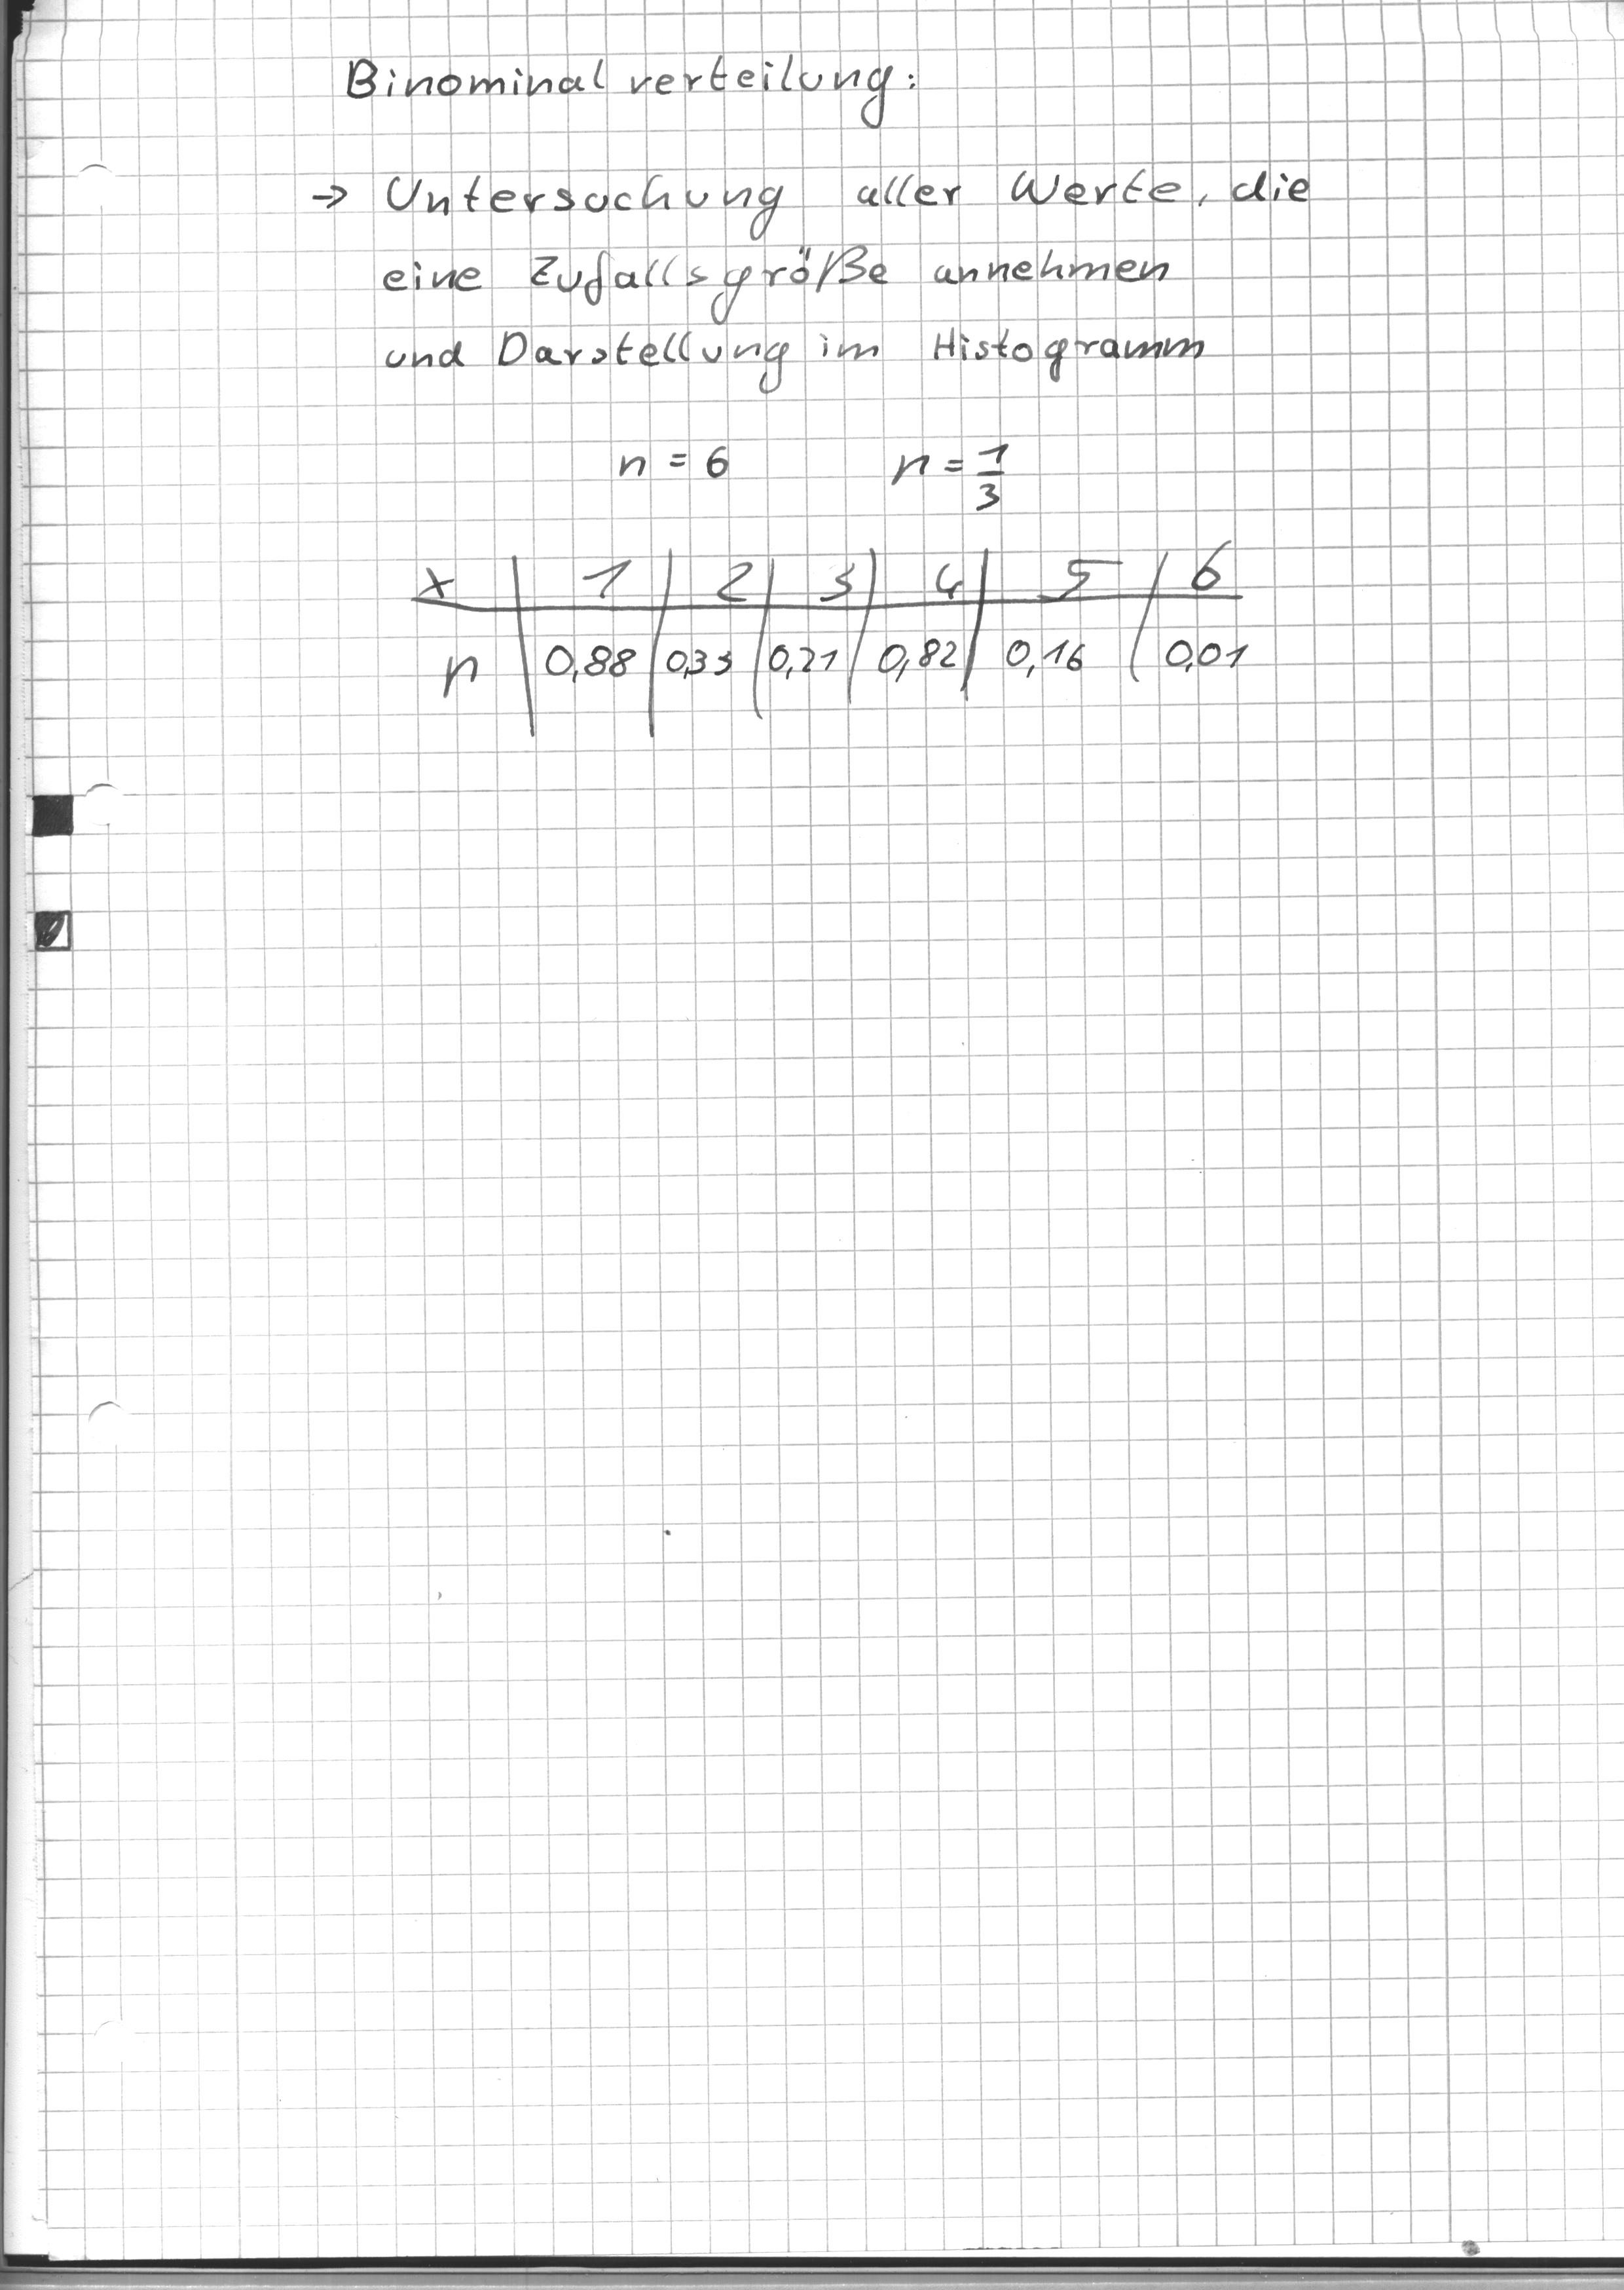 Binominalverteilung:
→ Untersuchung aller Werte, die
eine Zufallsgröße annehmen
und Darstellung im Histogramm
n = 6 p = 1/3
x | 1 | 2 | 3 | 4 | 5 | 6
p | 0,88 | 0,33 | 0,21 | 0,82 | 0,16 | 0,01